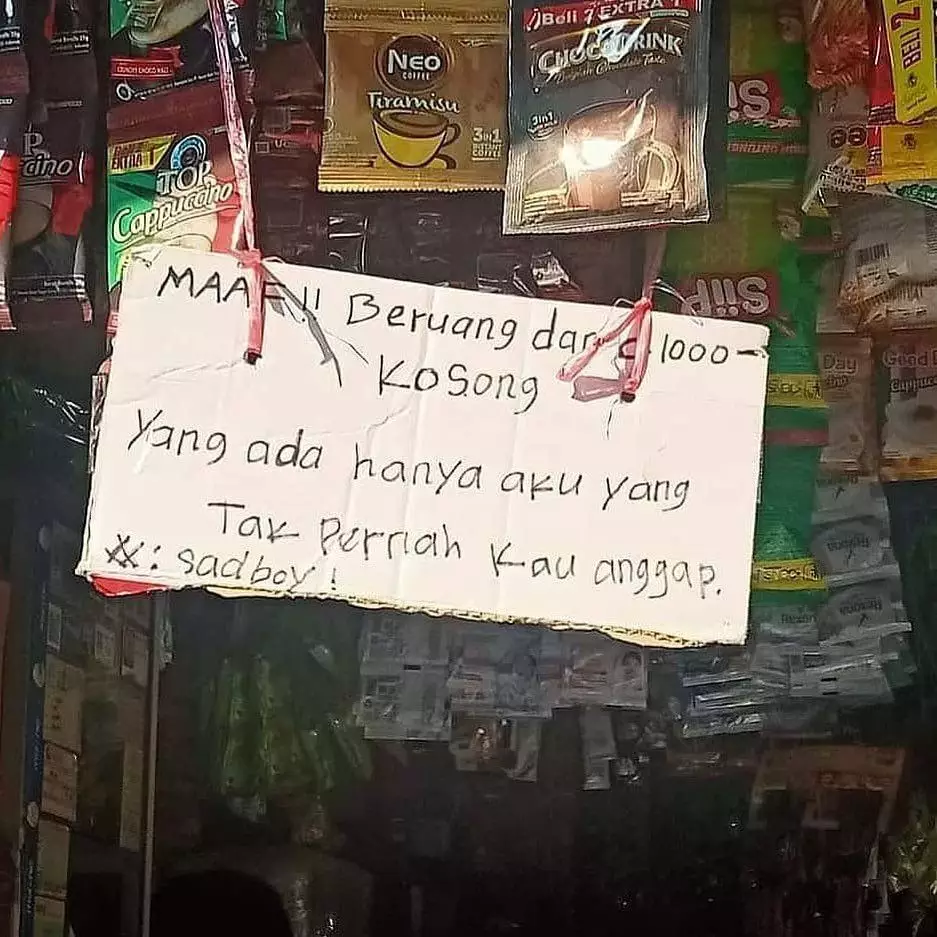 Beli 7 EXTRA 1
NEO
COFFEE
Tiramisu
3in1
INSTANT
COFFEE
3in1
EXTRA 1
TOP
Cappuccino
BELI 2
MAAF!! Beruang dan 1000-
Kosong
Yang ada hanya aku yang
Tak Pernah Kau anggap.
: sadboy!
Day
Good
Rexona